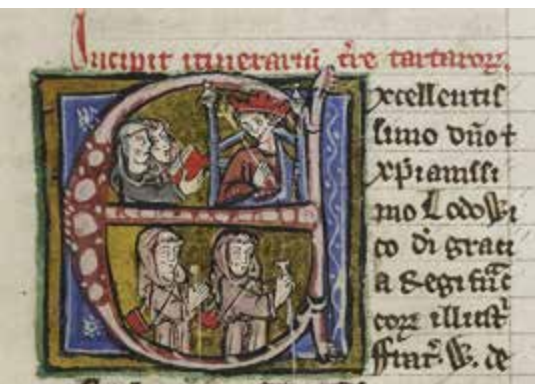 Incipit itinerariū t̄re tartaroꝝ.
Excellentis
simo dño ⁊
xp̄ianissi
mo Lodowi
co di grati
a Regi
illust̄
W. de